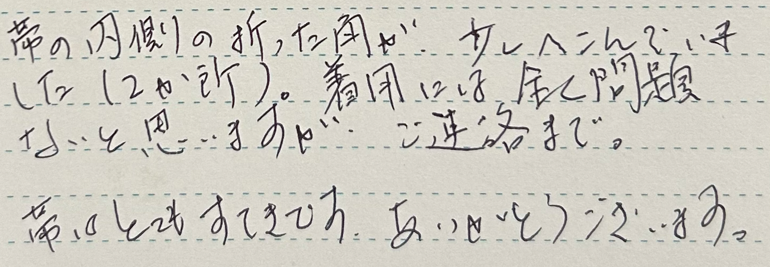 帯の内側の折った角が、少しへこんでいま
した(2か所)。着用には全く問題
ないと思いますが、ご連絡まで。
帯はとてもすてきです。ありがとうございます。